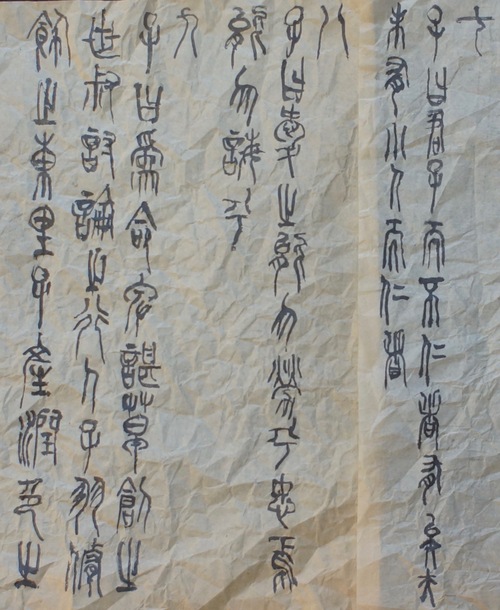 七
子曰君子而不仁者有矣夫
未有小人而仁者
八
子曰愛之能勿勞乎忠焉
能勿誨乎
九
子曰爲命裨諶草創之
世叔討論之行人子羽脩
飾之東里子產潤色之